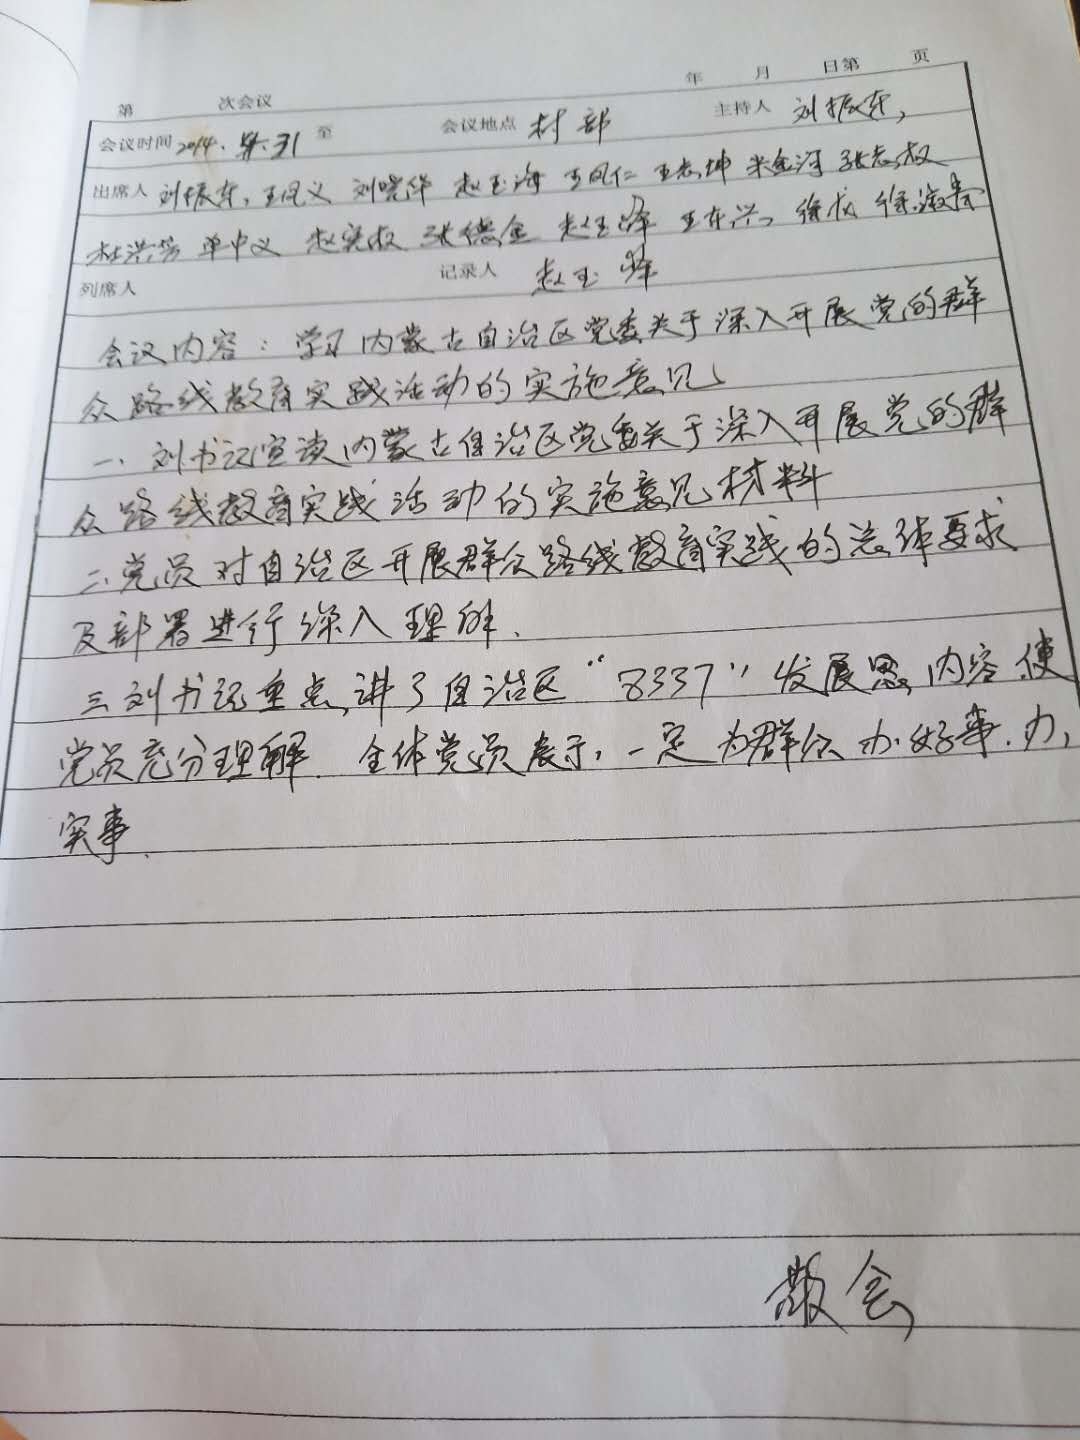 年 月 日第 页
第 次会议
会议时间 2014. .31 至 会议地点 村部 主持人 刘振东,
出席人 刘振东, 王凤义 刘晓华 赵玉海 王凤仁 王志坤 米金河 张志权
杜洪芳 单中义 赵宪权 张德金 赵玉峰 王东兴, 徐龙 徐淑春
列席人 记录人 赵玉峰
会议内容：学习内蒙古自治区党委关于深入开展党的群
众路线教育实践活动的实施意见
一、刘书记宣读内蒙古自治区党委关于深入开展党的群
众路线教育实践活动的实施意见材料
二、党员对自治区开展群众路线教育实践的总体要求
及部署进行深入理解.
三、刘书记重点讲了自治区“8337”发展思内容.使
党员充分理解. 全体党员表示,一定为群众办好事.办
实事.
散会